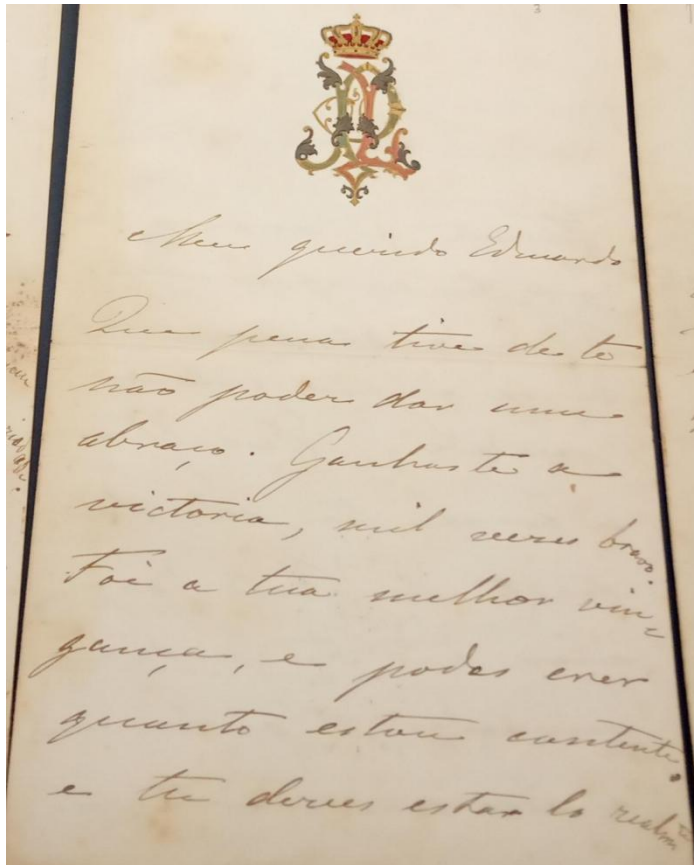 Meu querido Eduardo
Que pena tive de te
não poder dar um
abraço. Ganhaste a
victoria, mil vezes bravo.
Foi a tua melhor vin=
gança, e podes crer
quanto estou contente.
e tu deves estar lo